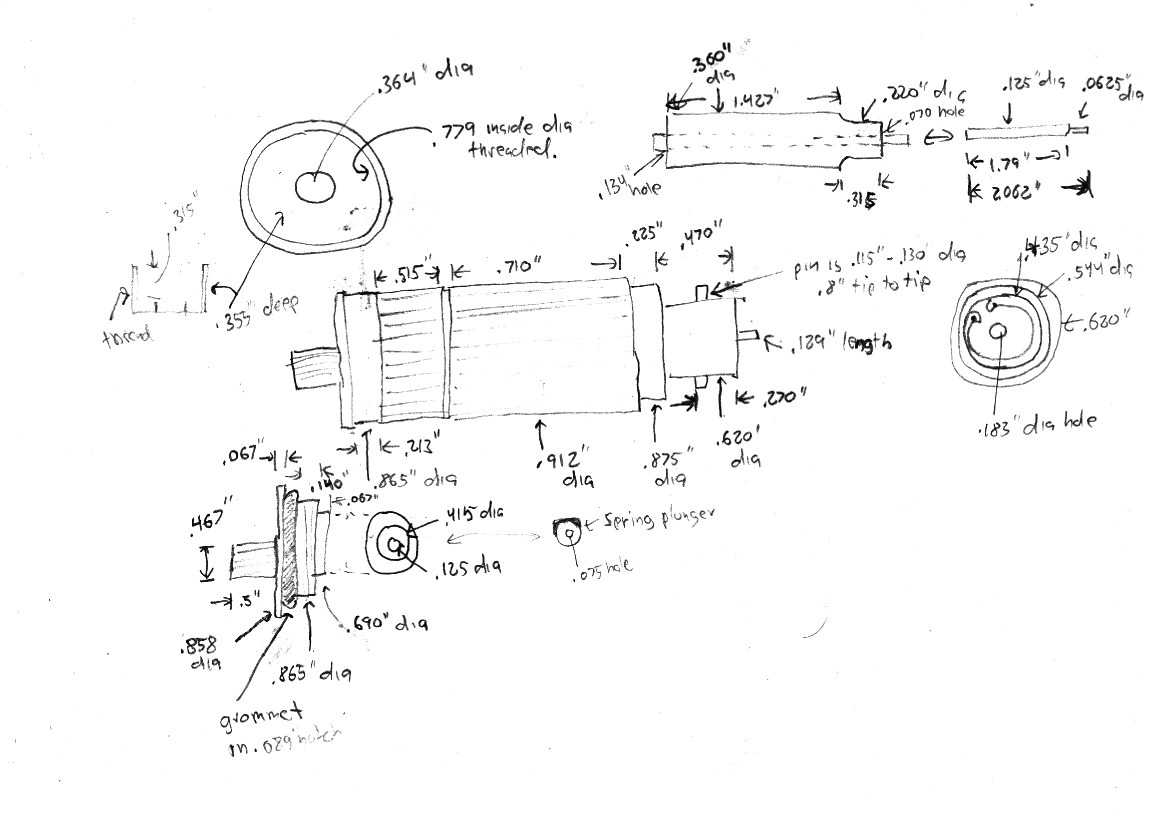 .364" dia
.779 inside dia
threaded.
.315"
thread
.355" deep
.360"
dia
1.427"
.220" dia
.070 hole
.134" hole
.315
.125" dia
.0625"
dia
1.79"
2.062"
.515"
.710"
.225"
.470"
pin is .115" - .130' dia
.8" tip to tip
.129" length
.270"
.213"
.865" dia
.912"
dia
.875"
dia
.620'
dia
.435" dia
.544" dia
.620"
.183" dia hole
.067"
.140"
.067"
.467"
.5"
.415 dia
.125 dia
spring plunger
.075 hole
.858
dia
.690" dia
.865" dia
grommet
in .029" notch